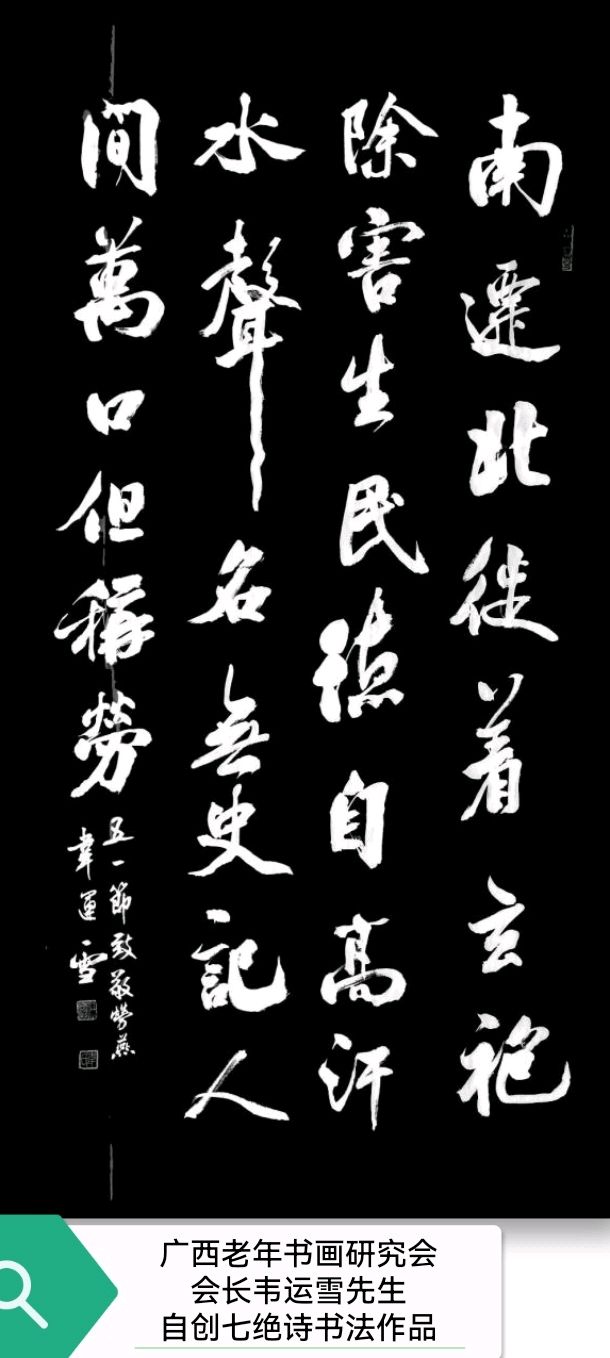 南遷北徙着玄袍
除害生民德自高汗
水聲名無史記人
間萬口但稱勞
五一節致敬勞燕
韋運雪
广西老年书画研究会
会长韦运雪先生
自创七绝诗书法作品